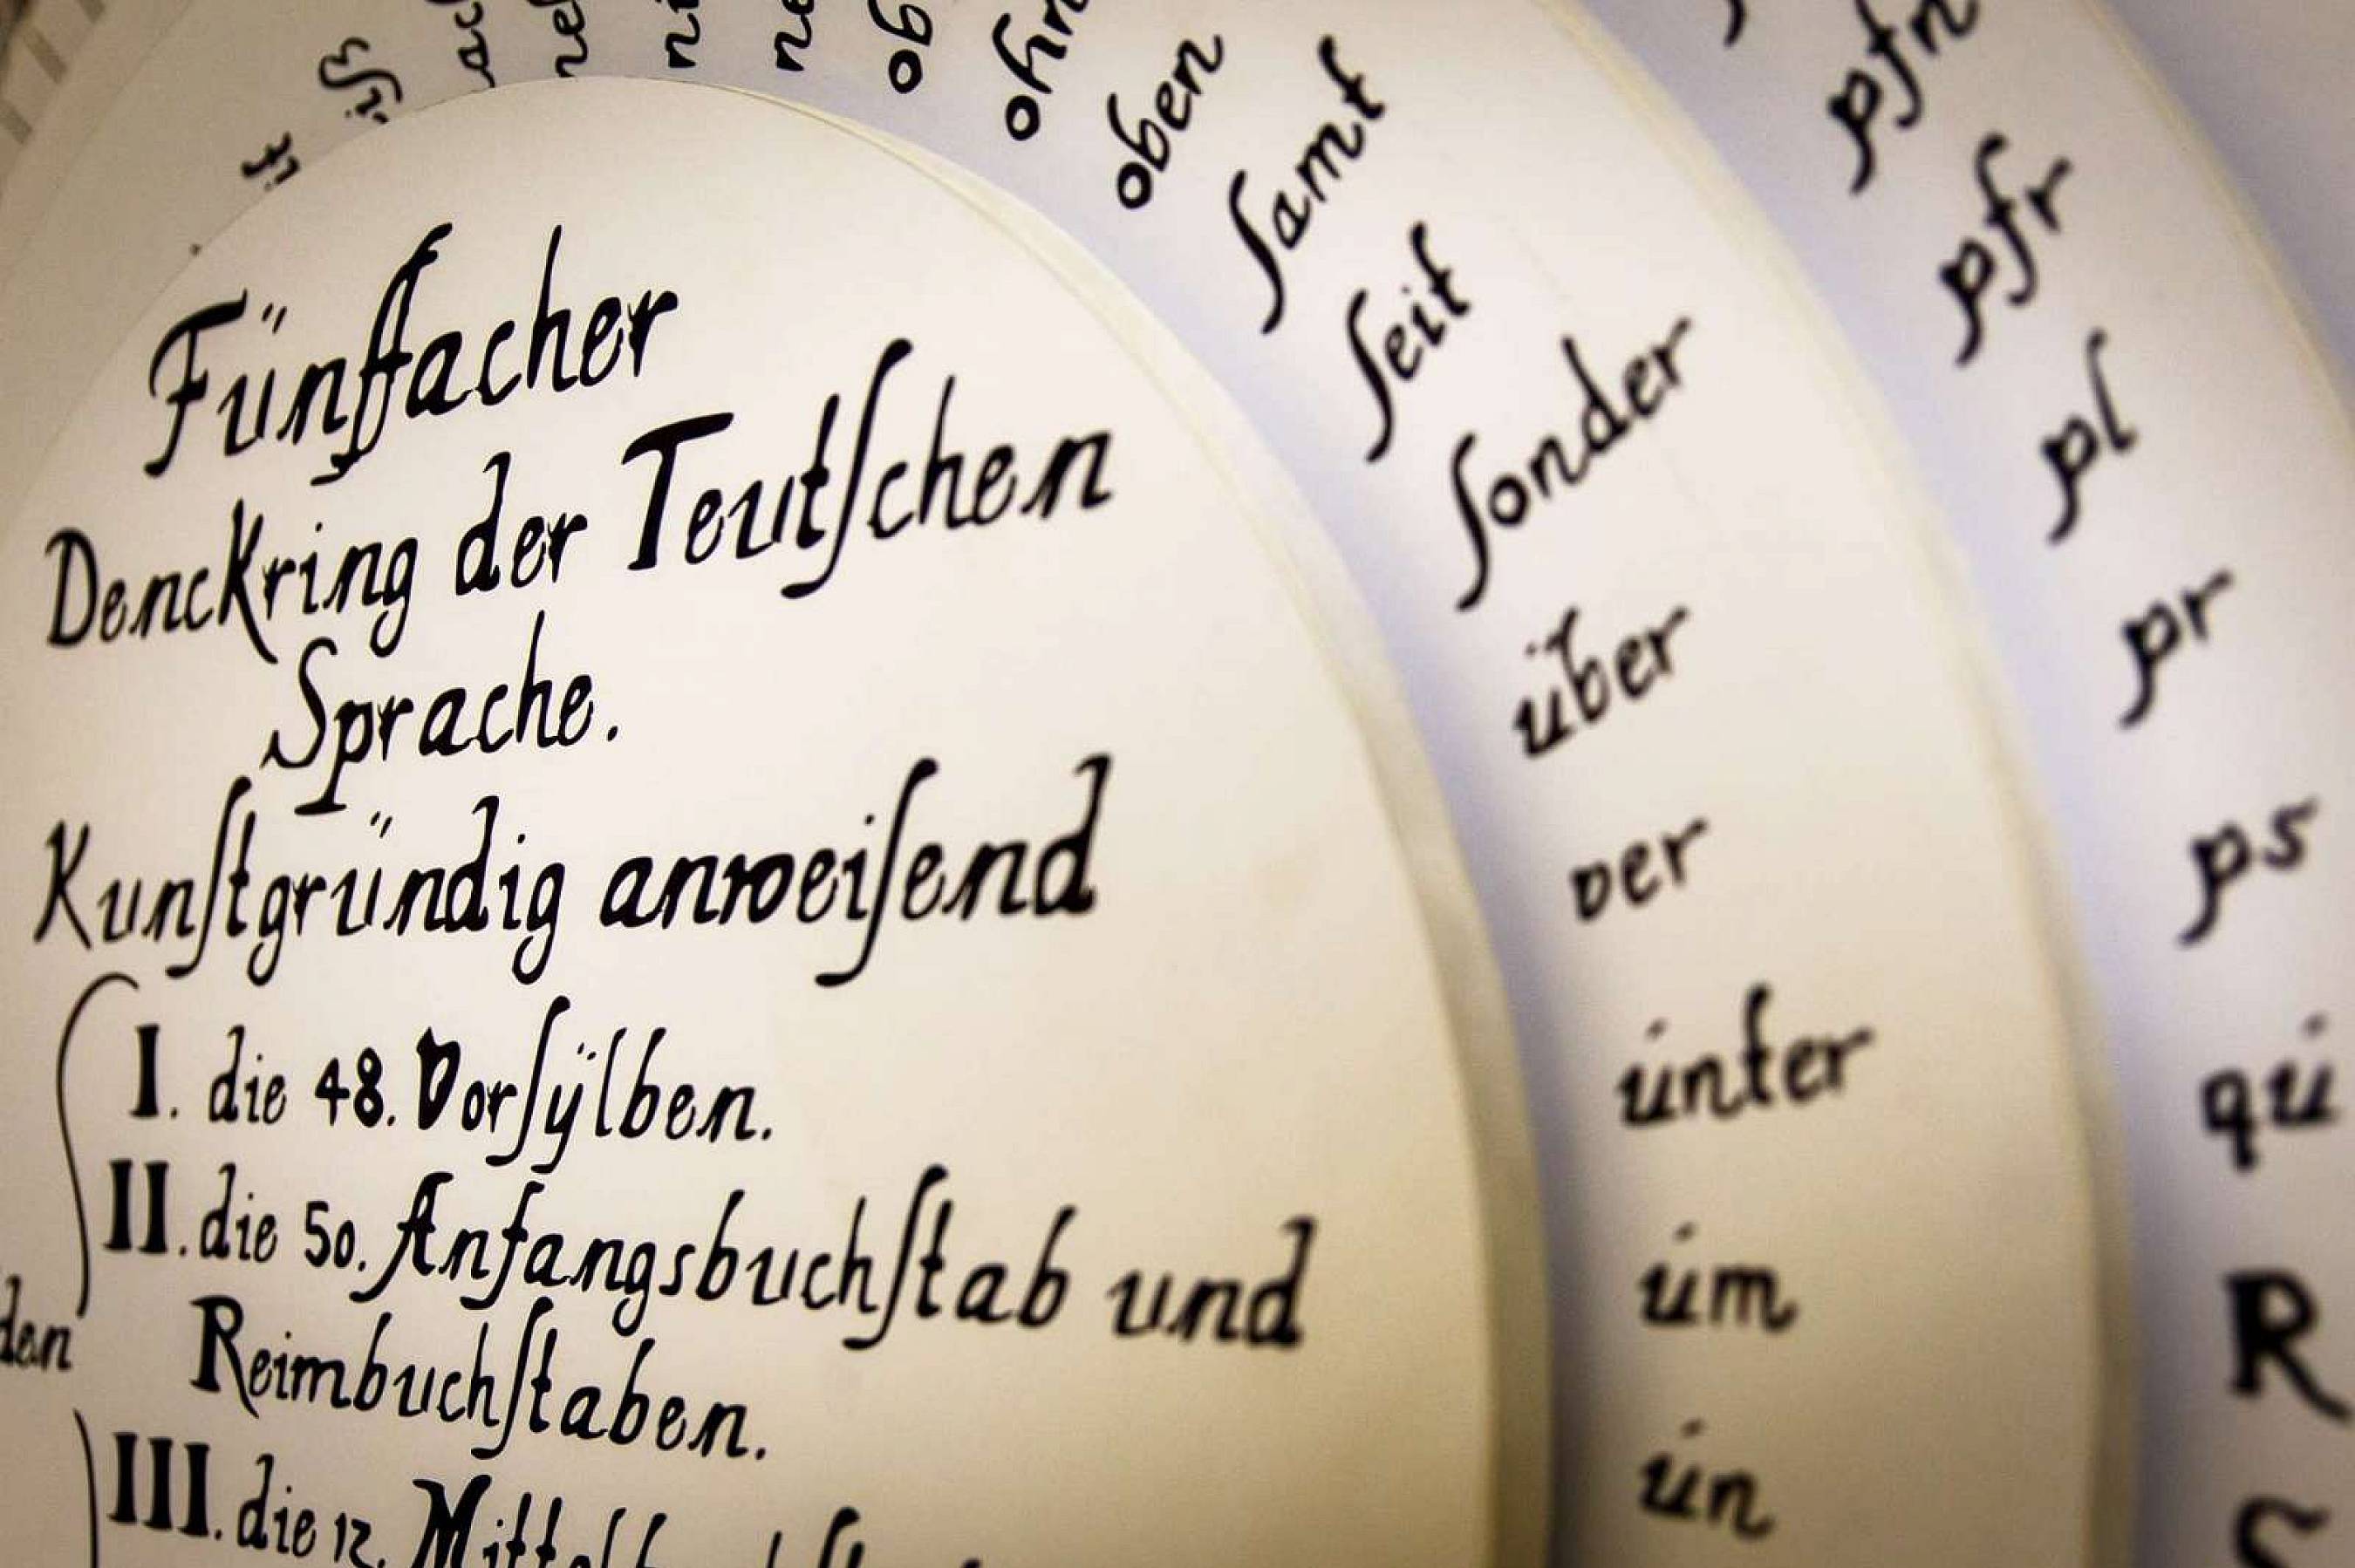 Fünffacher
Denckring der Teutſchen
Sprache.
Kunſtgründig anweiſend
I. die 48. Vorſÿlben.
II. die 50. Anfangsbuchſtab und
Reimbuchſtaben.
III. die 12.
den
oben
ſamt
ſeit
ſonder
über
ver
unter
um
un
pfn
pfr
pl
pr
ps
qu
R